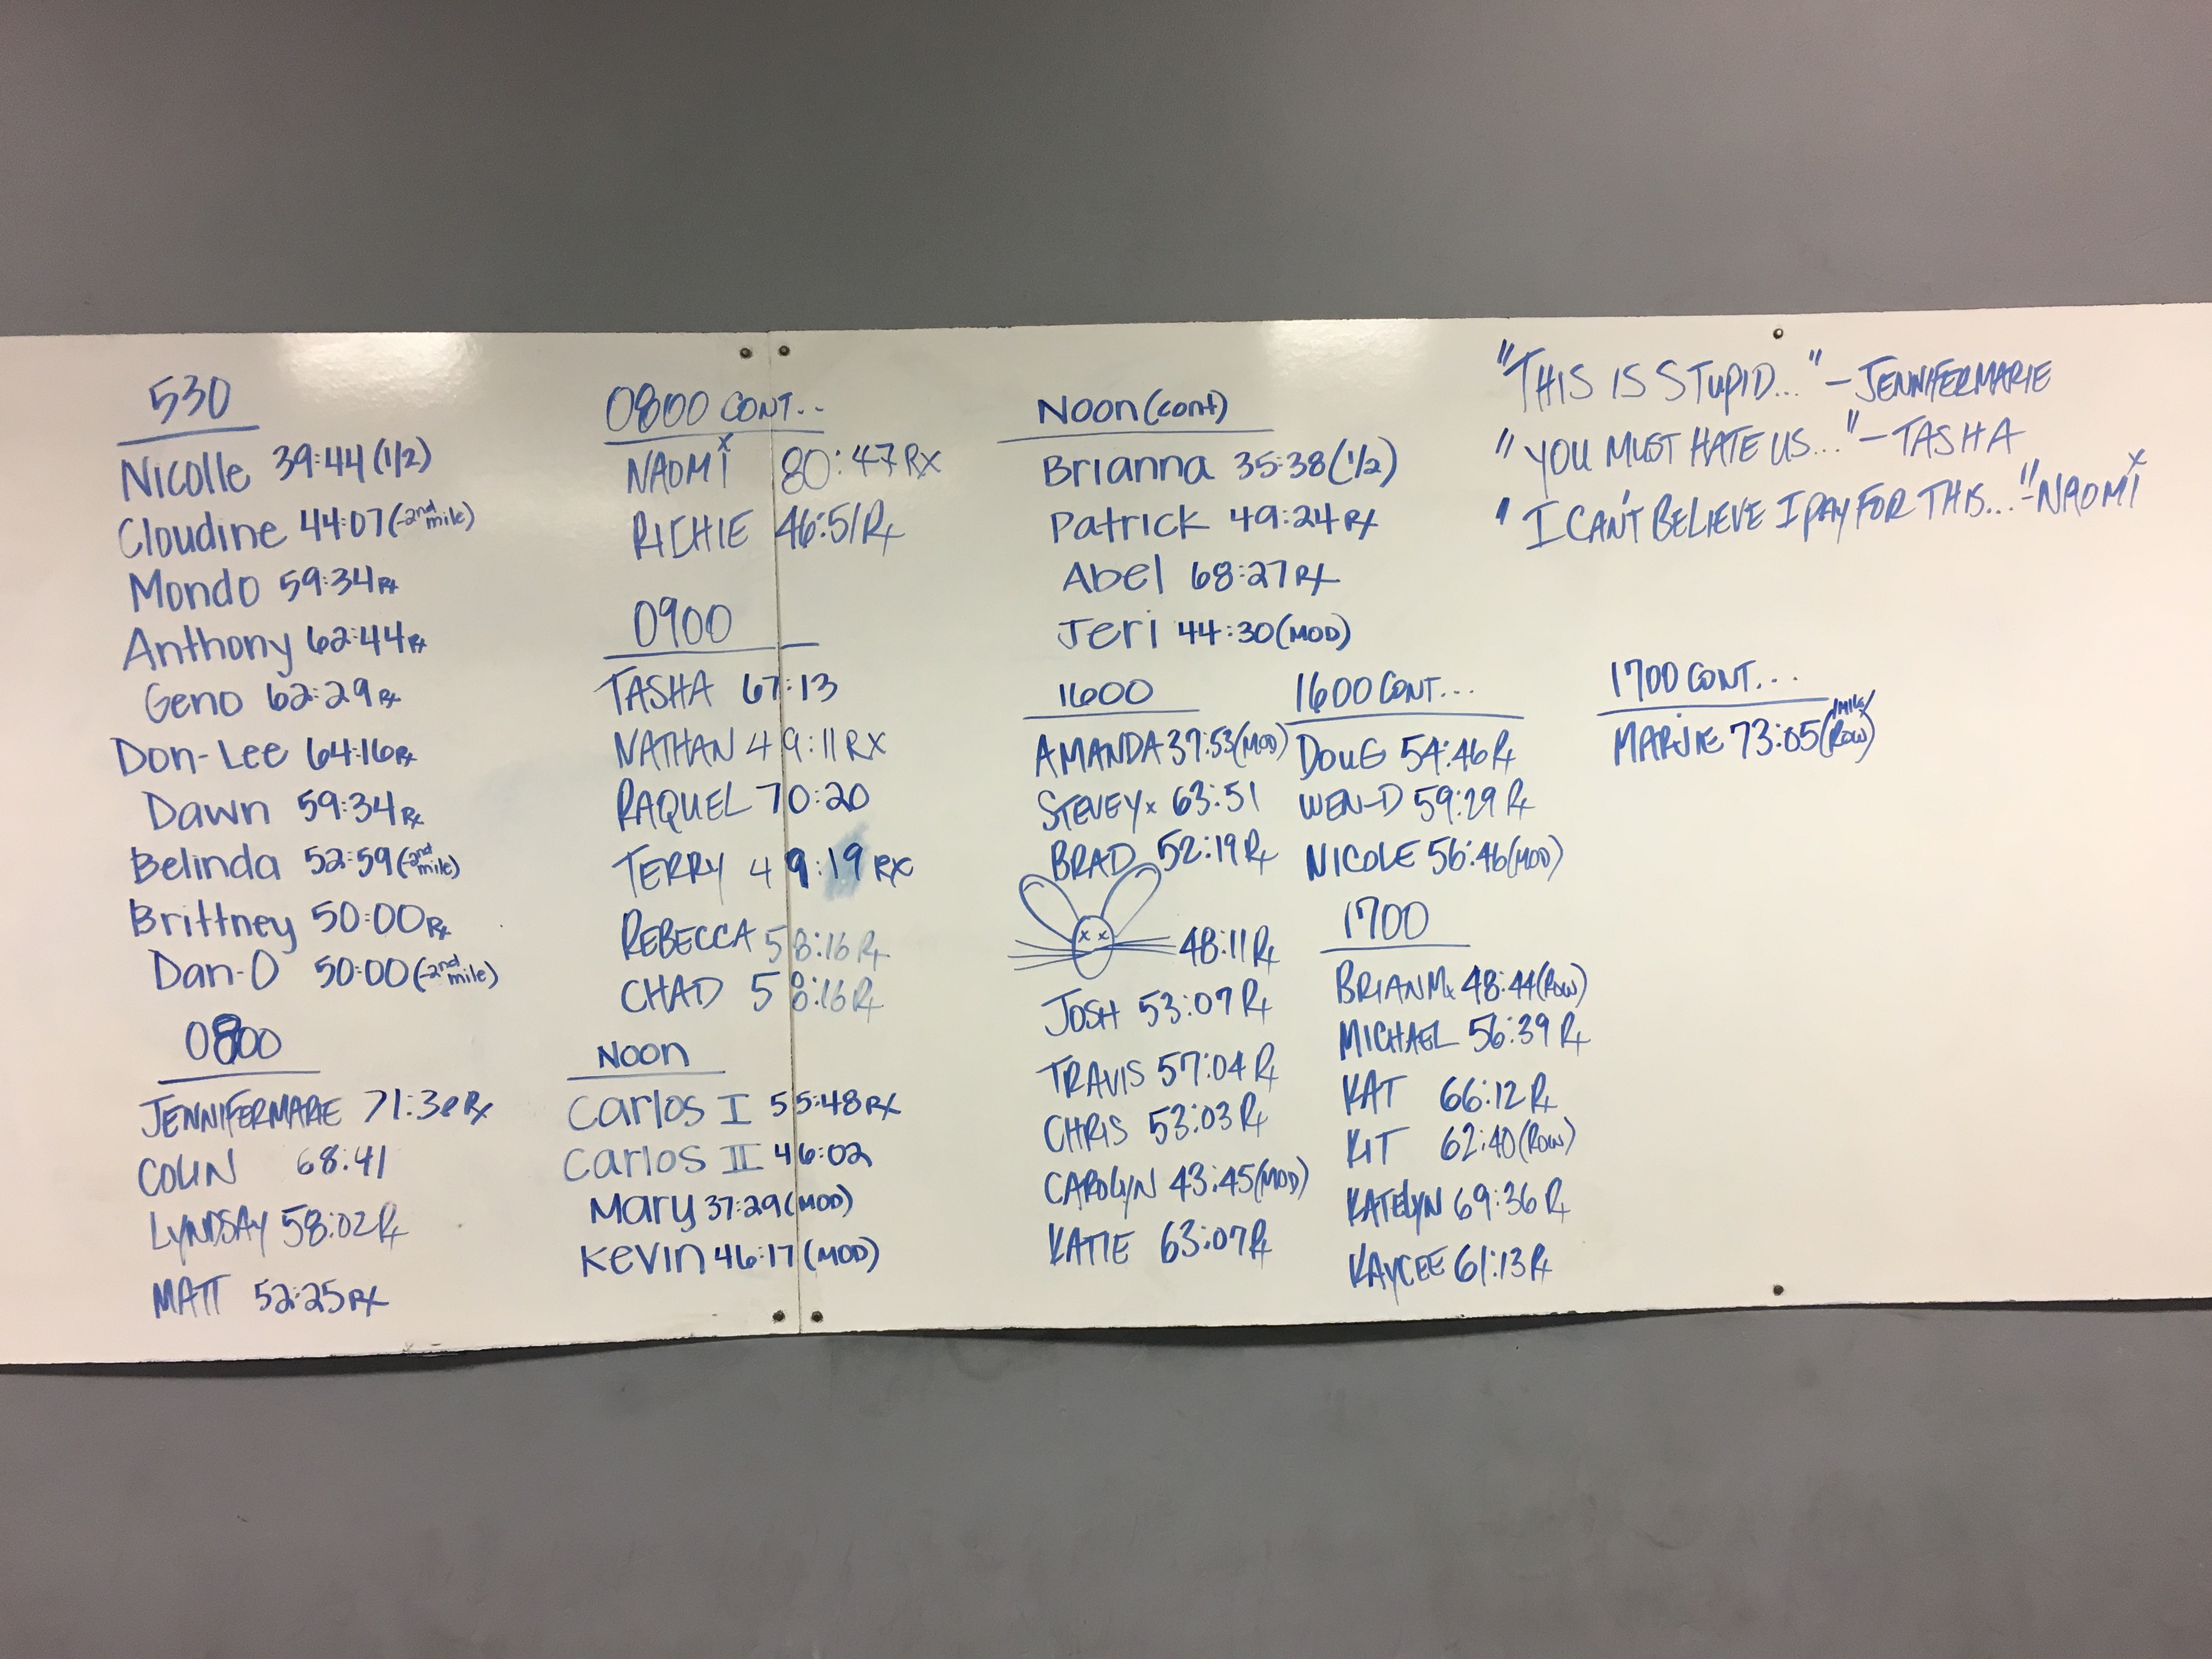 530
Nicolle 39:44 (1/2)
Cloudine 44:07 (-2nd mile)
Mondo 59:34 Rx
Anthony 62:44 Rx
Geno 62:29 Rx
Don-Lee 64:16 Rx
Dawn 59:34 Rx
Belinda 52:59 (-2nd mile)
Brittney 50:00 Rx
Dan-O 50:00 (-2nd mile)
0800
JENNIFERMARIE 71:30 Rx
COLIN 68:41
LYNDSAY 58:02 Rx
MATT 52:25 Rx
0800 CONT..
NAOMI 80:47 Rx
RICHIE 46:51 Rx
0900
TASHA 67:13
NATHAN 49:11 RX
RAQUEL 70:20
TERRY 49:19 RX
REBECCA 58:16 Rx
CHAD 58:16 Rx
NOON
Carlos I 55:48 RX
Carlos II 46:02
Mary 37:29 (MOD)
Kevin 46:17 (MOD)
Noon (cont)
Brianna 35:38 (1/2)
Patrick 49:24 Rx
Abel 68:27 Rx
Jeri 44:30 (MOD)
1600
AMANDA 37:53 (MOD)
STEVEYx 63:51
BRAD 52:19 Rx
x x 48:11 Rx
JOSH 53:07 Rx
TRAVIS 57:04 Rx
CHRIS 53:03 Rx
CAROLYN 43:45 (MOD)
KATIE 63:07 Rx
1600 CONT...
DOUG 54:46 Rx
WEN-D 59:29 Rx
NICOLE 56:46 (MOD)
1700
BRIANMx 48:44 (ROW)
MICHAEL 56:39 Rx
KAT 66:12 Rx
KIT 62:40 (ROW)
KATELYN 69:36 Rx
KAYCEE 61:13 Rx
"THIS IS STUPID..." - JENNIFERMARIE
"YOU MUST HATE US..." - TASHA
"I CAN'T BELIEVE I PAY FOR THIS..." - NAOMI
1700 CONT...
MARJIE 73:05 (1 MILE/ ROW)